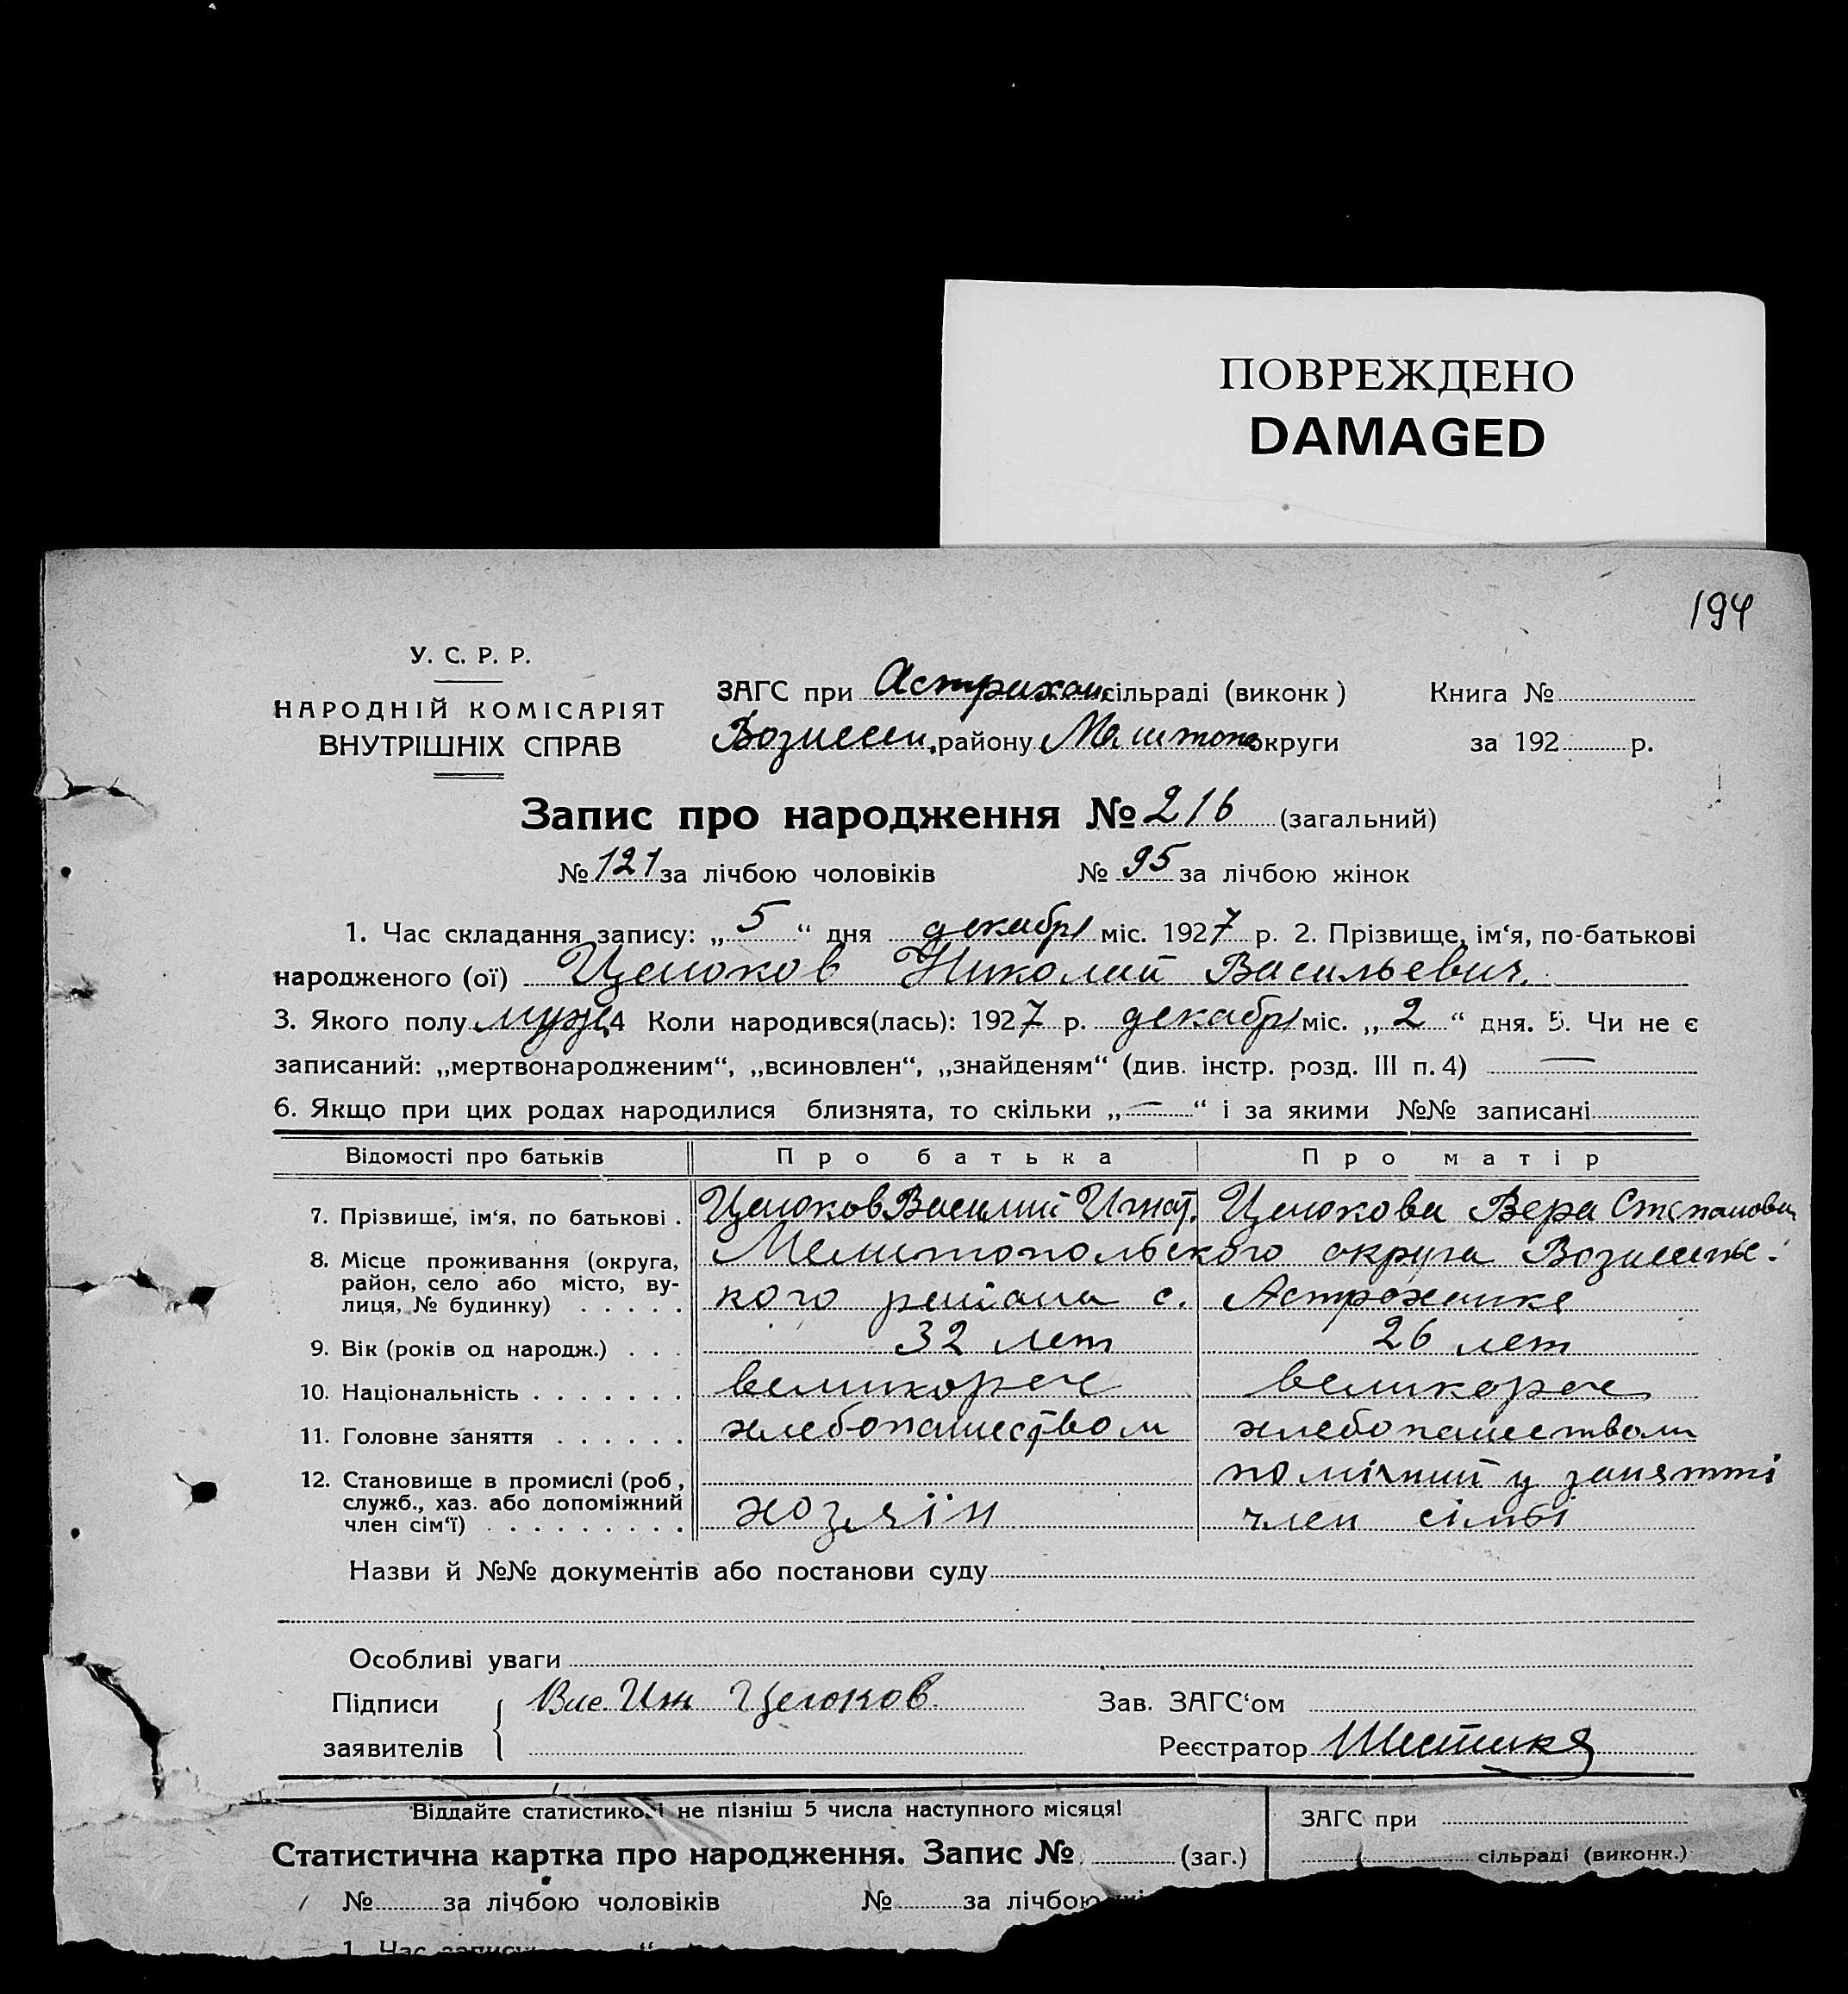 ПОВРЕЖДЕНО
DAMAGED
194
У. С. Р. Р.
НАРОДНІЙ КОМІСАРІЯТ
ВНУТРІШНІХ СПРАВ
ЗАГС при Астрахан. сільраді (виконк) Книга №
району округи за 192 р.
Запис про народження № 216 (загальний)
№ 121 за лічбою чоловіків № 95 за лічбою жінок
1. Час складання запису: „ 5 “ дня декабря міс. 1927 р. 2. Прізвище, ім‘я, по-батькові
народженого (ої) Целоков Николай Васильевич.
3. Якого полу муж. 4 Коли народився(лась): 1927 р. декабря міс. „ 2 “ дня. 5. Чи не є
записаний: „мертвонародженим“, „всиновлен“, „знайденям“ (див. інстр. розд. III п. 4) —
6. Якщо при цих родах народилися близнята, то скільки „ — “ і за якими №№ записані
Відомості про батьків Про батька Про матір
7. Прізвище, ім‘я, по батькові . Целоков Василий Игнат. Целокова Вера Степановн
8. Місце проживання (округа, район, село або місто, вулиця, № будинку) . . . . . Мелитопольского округа Вознесенс.
кого района с. Астраханке
9. Вік (років од народж.) . . . 32 лет 26 лет
10. Національність . . . . . . . великорос великорос
11. Головне заняття . . . . . . хлебопашеством хлебопашеством
12. Становище в промислі (роб, служб., хаз. або допоміжний член сім‘ї) . . . . . . . . . помічний у занятті
хозяін член сімьі
Назви й №№ документів або постанови суду
Особливі уваги
Підписи Целоков Зав. ЗАГС‘ом
заявителів Реєстратор
Віддайте статистикові не пізніш 5 числа наступного місяця! ЗАГС при
Статистична картка про народження. Запис № (заг.) сільраді (виконк.)
№ за лічбою чоловіків № за лічбою
1. Час запису